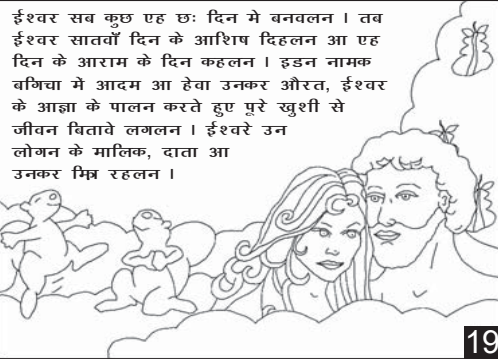 ईश्वर सब कुछ एह छः दिन मे बनवलन । तब
ईश्वर सातवाँ दिन के आशिष दिहलन आ एह
दिन के आराम के दिन कहलन । इडन नामक
बगिचा में आदम आ हेवा उनकर औरत, ईश्वर
के आज्ञा के पालन करते हुए पूरे खुशी से
जीवन बितावे लगलन । ईश्वरे उन
लोगन के मालिक, दाता आ
उनकर मित्र रहलन ।
19